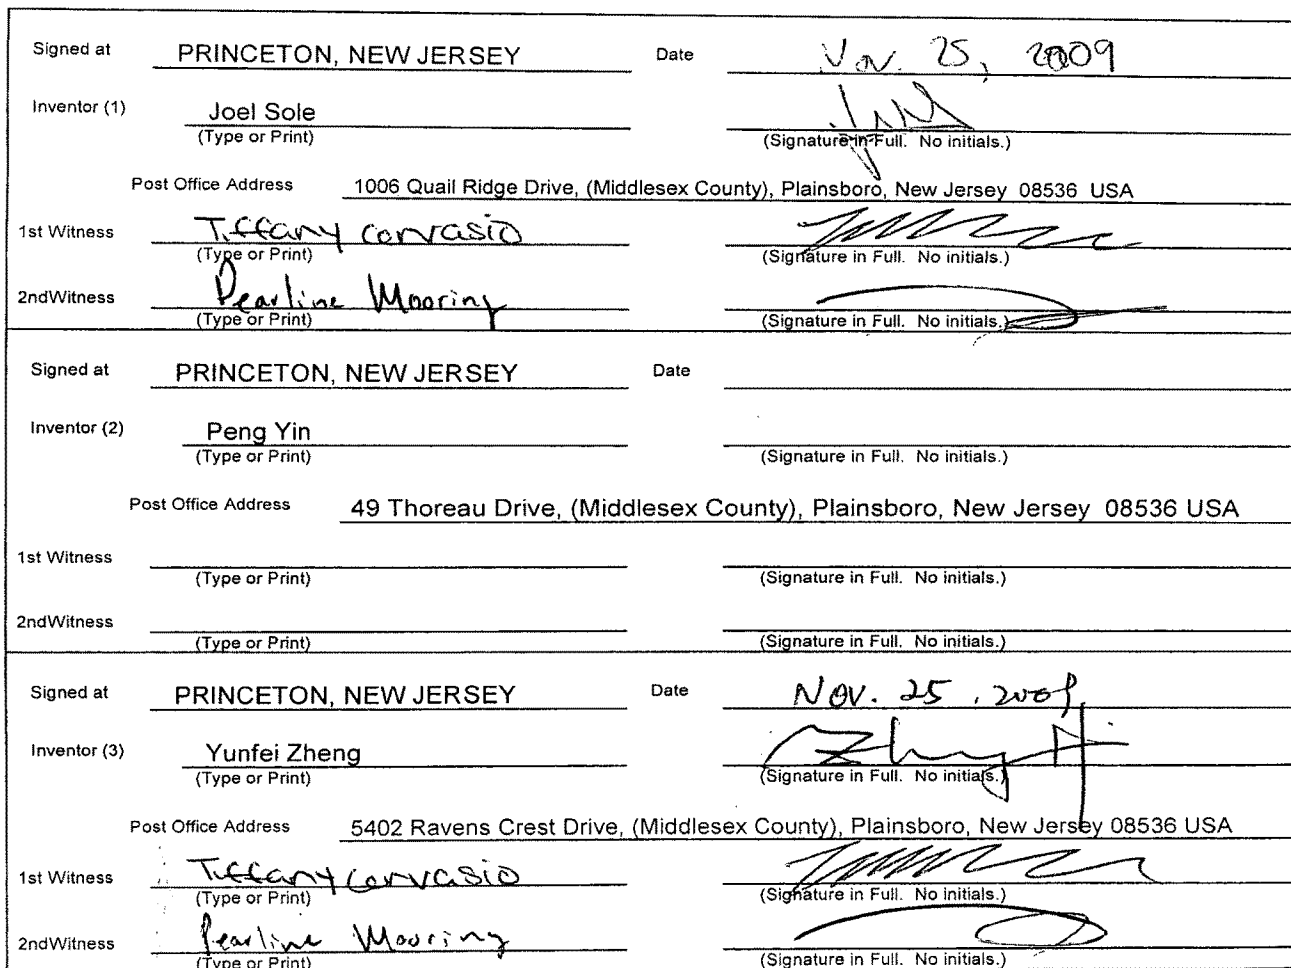 Signed at PRINCETON, NEW JERSEY Date Nov. 25, 2009
Inventor (1) Joel Sole
(Type or Print) (Signature in Full. No initials.)
Post Office Address 1006 Quail Ridge Drive, (Middlesex County), Plainsboro, New Jersey 08536 USA
1st Witness Tiffany Corvasio
(Type or Print) (Signature in Full. No initials.)
2ndWitness Pearline Mooring
(Type or Print) (Signature in Full. No initials.)
Signed at PRINCETON, NEW JERSEY Date
Inventor (2) Peng Yin
(Type or Print) (Signature in Full. No initials.)
Post Office Address 49 Thoreau Drive, (Middlesex County), Plainsboro, New Jersey 08536 USA
1st Witness
(Type or Print) (Signature in Full. No initials.)
2ndWitness
(Type or Print) (Signature in Full. No initials.)
Signed at PRINCETON, NEW JERSEY Date NOV. 25, 2009
Inventor (3) Yunfei Zheng
(Type or Print) (Signature in Full. No initials.)
Post Office Address 5402 Ravens Crest Drive, (Middlesex County), Plainsboro, New Jersey 08536 USA
1st Witness Tiffany Corvasio
(Type or Print) (Signature in Full. No initials.)
2ndWitness Pearline Mooring
(Type or Print) (Signature in Full. No initials.)